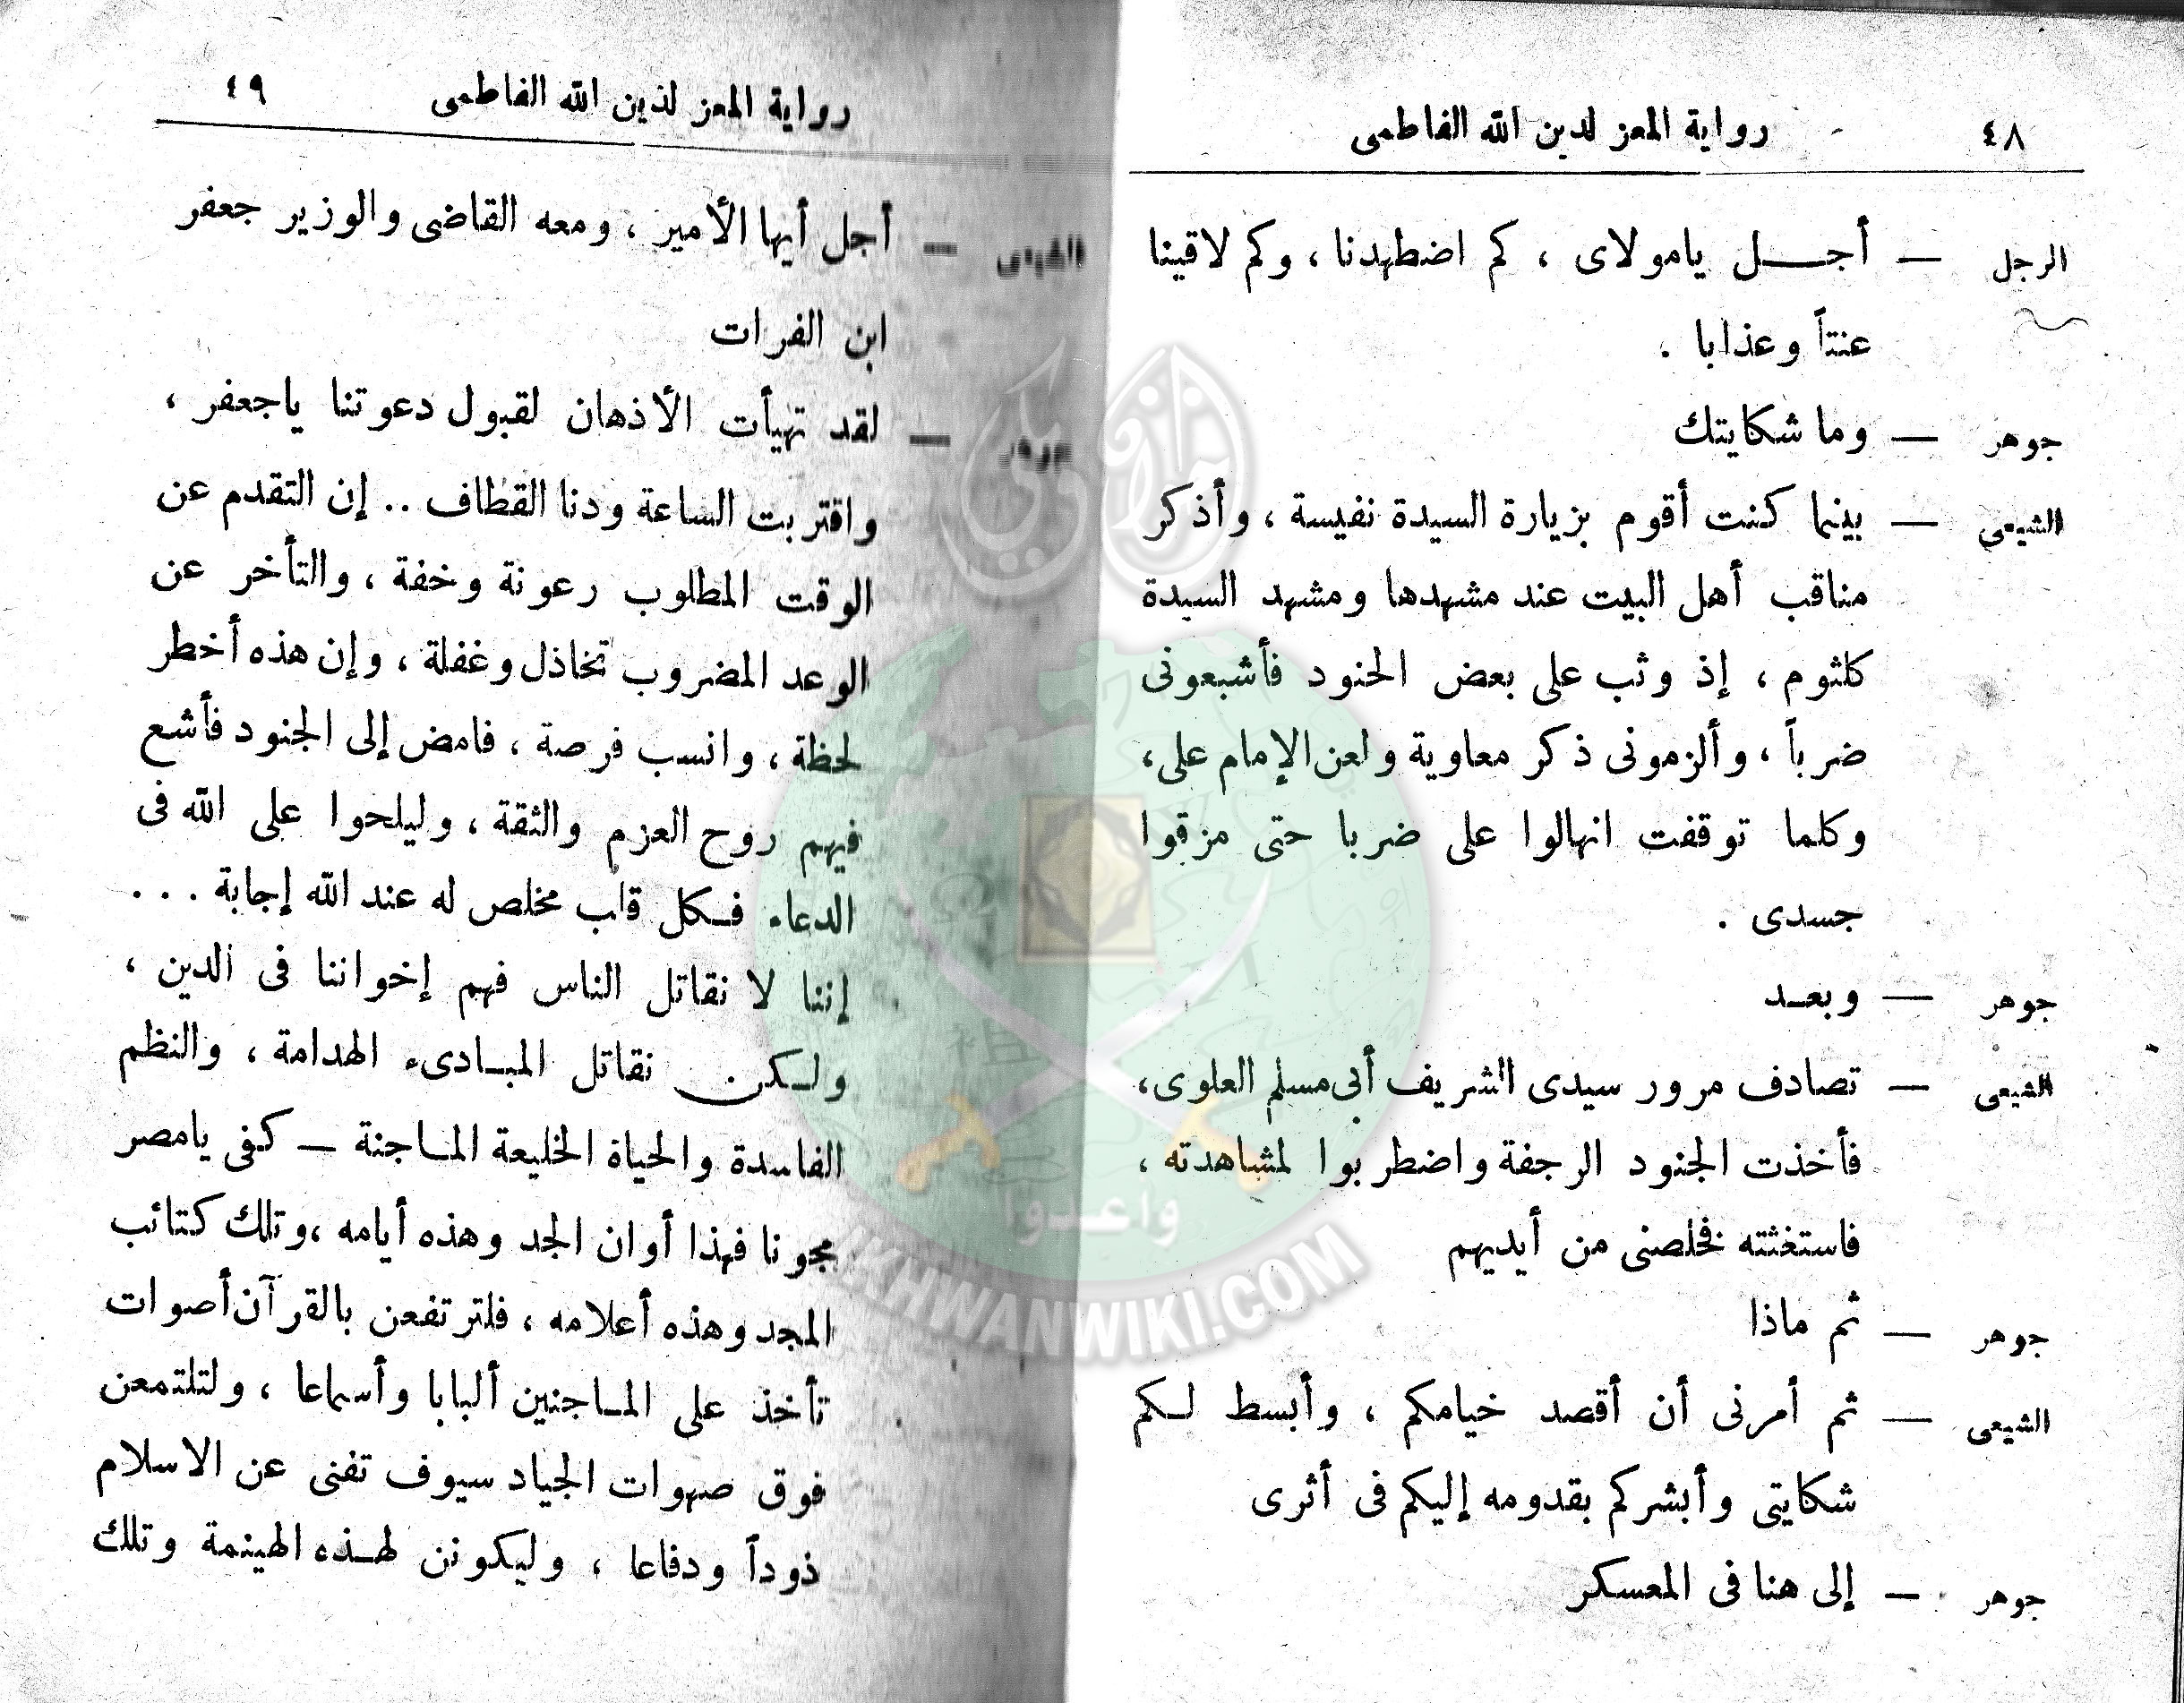 ٤٨ رواية المعز لدين الله الفاطمى
الرجل — أجـــل يامولاى ، كم اضطهدنا ، وكم لاقينا
عنتاً وعذابا .
جوهر — وما شكايتك
الشيعى — بينما كنت أقوم بزيارة السيدة نفيسة ، وأذكر
مناقب أهل البيت عند مشهدها ومشهد السيدة
كلثوم ، إذ وثب على بعض الجنود فأشبعونى
ضرباً ، وألزمونى ذكر معاوية ولعن الإمام على،
وكلما توقفت انهالوا على ضربا حتى مزقوا
جسدى .
جوهر — وبعـد
الشيعى — تصادف مرور سيدى الشريف أبى مسلم العلوى،
فأخذت الجنود الرجفة واضطربوا لمشاهدته ،
فاستغثته فخلصنى من أيديهم
جوهر — ثم ماذا
الشيعى — ثم أمرنى أن أقصد خيامكم ، وأبسط لـكم
شكايتى وأبشركم بقدومه إليكم فى أثرى
جوهر — إلى هنا فى المعسكر
رواية المعز لدين الله الفاطمى ٤٩
الشيعى — أجل أيها الأمير ، ومعه القاضى والوزير جعفر
ابن الفرات
جوهر — لقد تهيأت الأذهان لقبول دعوتنا ياجعفر ،
واقتربت الساعة ودنا القطاف .. إن التقدم عن
الوقت المطلوب رعونة وخفة ، والتأخر عن
الوعد المضروب تخاذل وغفلة ، وإن هذه أخطر
لحظة ، وانسب فرصة ، فامض إلى الجنود فأشع
فيهم روح العزم والثقة ، وليلحوا على الله فى
الدعاء فـكل قلب مخلص له عند الله إجابة . . .
إننا لا نقاتل الناس فهم إخواننا فى الدين ،
ولـكن نقاتل المبـادىء الهدامة ، والنظم
الفاسدة والحياة الخليعة المـاجنة — كفى يامصر
مجونا فهذا أوان الجد وهذه أيامه ،وتلك كتائب
المجد وهذه أعلامه ، فلترتفعن بالقرآن أصوات
تأخذ على المـاجنين ألبابا وأسماعا ، ولتلتمعن
فوق صهوات الجياد سيوف تفنى عن الاسلام
ذوداً ودفاعا ، وليكونن لهـذه الهينمة وتلك
وأعدوا
IKHWANWIKI.COM